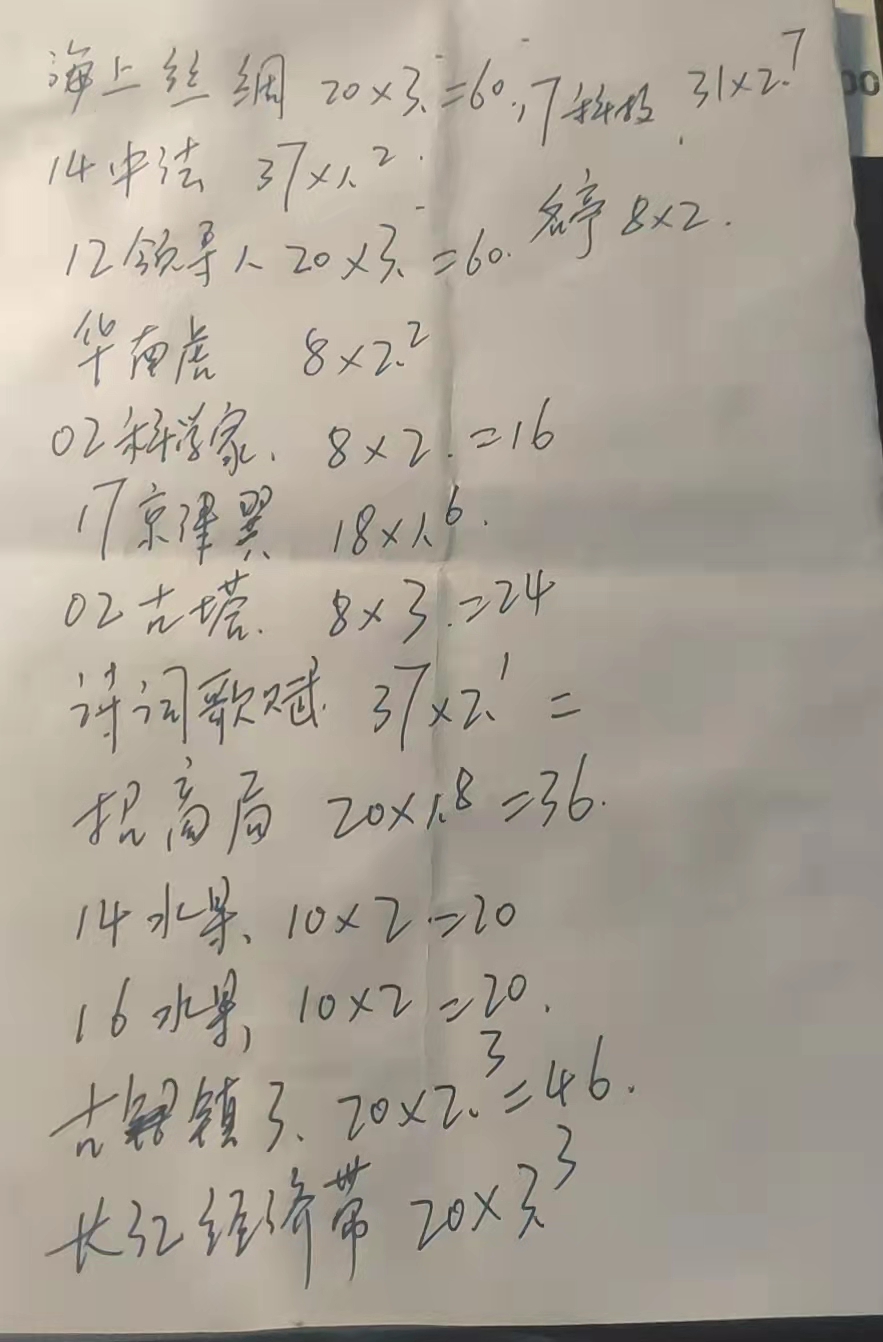 海上丝绸 20×3.=60. 17科技 31×2.7
14中法 37×1.2
名亭 8×2.
12领导人 20×3.=60.
华南虎 8×2.2
02科学家. 8×2.=16
17京津翼 18×1.6.
02古塔. 8×3.=24
诗词歌赋 37×2.1=
招商局 20×1.8=36.
14水果、10×2=20
16水果, 10×2=20.
古镇3、20×2.3=46.
长江经济带 20×3.3